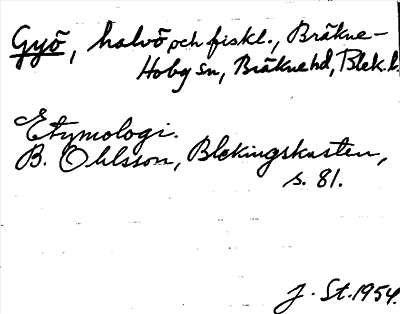 Gyö, halvö och fiskl., Bräkne-
Hoby sn, Bräknehd, Blek. l.
Etymologi.
B. Ohlsson, Blekingskusten,
s. 81.
J. St. 1954.